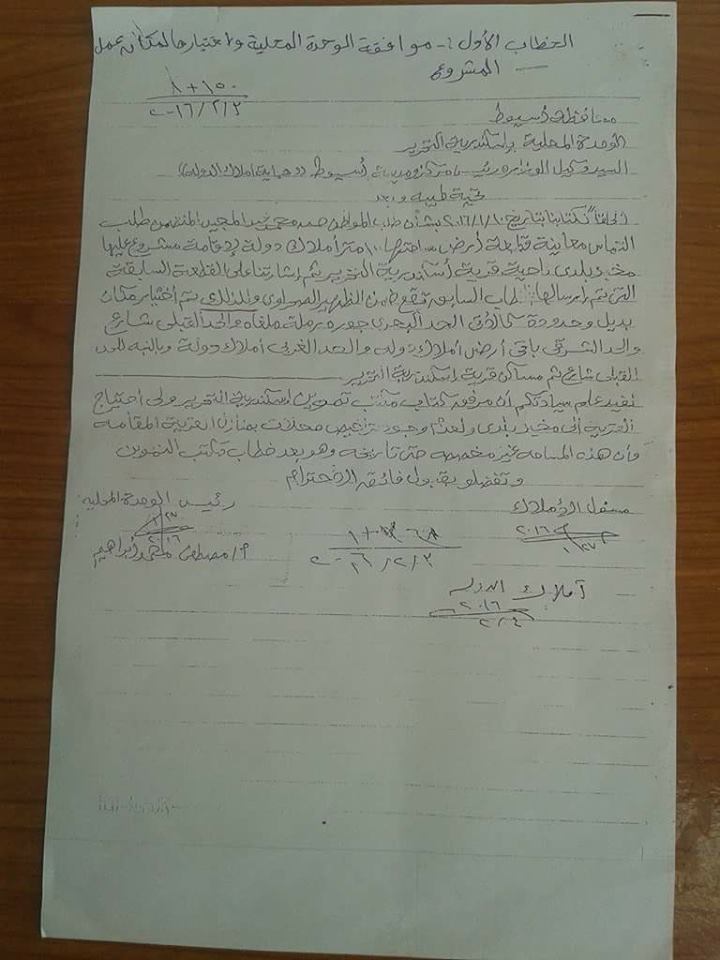 الخطاب الأول :- موافقة الوحدة المحلية واختيارها لمكان عمل
المشروع
١٥٠ + ٨
٢٠١٦/٢/٢
محافظة أسيوط
الوحدة المحلية بإسكندرية التحرير
السيد وكيل الوزارة ورئيس مركز ومدينة أسيوط (( حماية أملاك الدولة ))
تحية طيبة وبعد
إلحاقاً لكتابنا بتاريخ ٢٠١٦/١/١٠ بشأن طلب المواطن محمد عبد المتضمن طلب
التماس معاينة قطعة أرض مساحتها ١٠٠ متر أملاك دولة لإقامة مشروع عليها
مخبز بلدى ناحية قرية إسكندرية التحرير تم إشارتنا على القطعة السابقة
التى تم إرسالها طلب السابق تقع ضمن الظهير الصحراوى ولذلك تم أختيار مكان
بديل ومحدودة كالأتى الحد البحرى جوره رملة ملفاه والحد القبلى شارع
والحد الشرقى باقى أرض أملاك دوله والحد الغربى أملاك دولة وبالنسبه للحد
القبلى شارع ثم مساكن قرية إسكندرية التحرير
نفيد علم سيادتكم أن مرفق كتاب مكتب تموين إسكندرية التحرير ولى أحتياج
القرية الى مخبز بلدى ولعدم وجود تراخيص مخلات بمنازل القرية المقامه
وأن هذه المساحه غير مخصصه حتى تاريخه وهو بعد خطاب مكتب التموين
وتفضلو بقبول فائق الاحترام
مسئول الأملاك
رئيس الوحدة المحلية
٢٠١٦
٢٠١٦
أ/ مصطفى محمد إبراهيم
٢٠١٦/٢/٢
أملاك الدوله
٢٠١٦
٢/٤